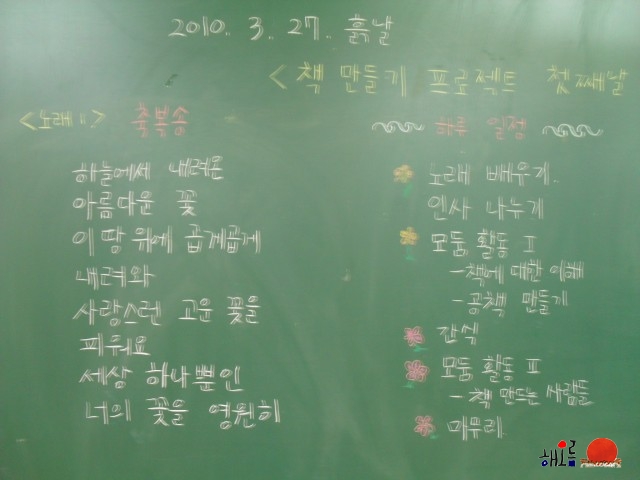 2010. 3. 27. 흙날
<책 만들기 프로젝트 첫째날
<노래 1.> 축복송
하늘에서 내려온
아름다운 꽃
이 땅 위에 곱게곱게
내려와
사랑스런 고운 꽃을
피워요
세상 하나뿐인
너의 꽃을 영원히
하루 일정
노래 배우기..
인사 나누기
모둠 활동 I
-책에 대한 이해
-공책 만들기
간식
모둠 활동 II
-책 만드는 사람들
마무리
해오름